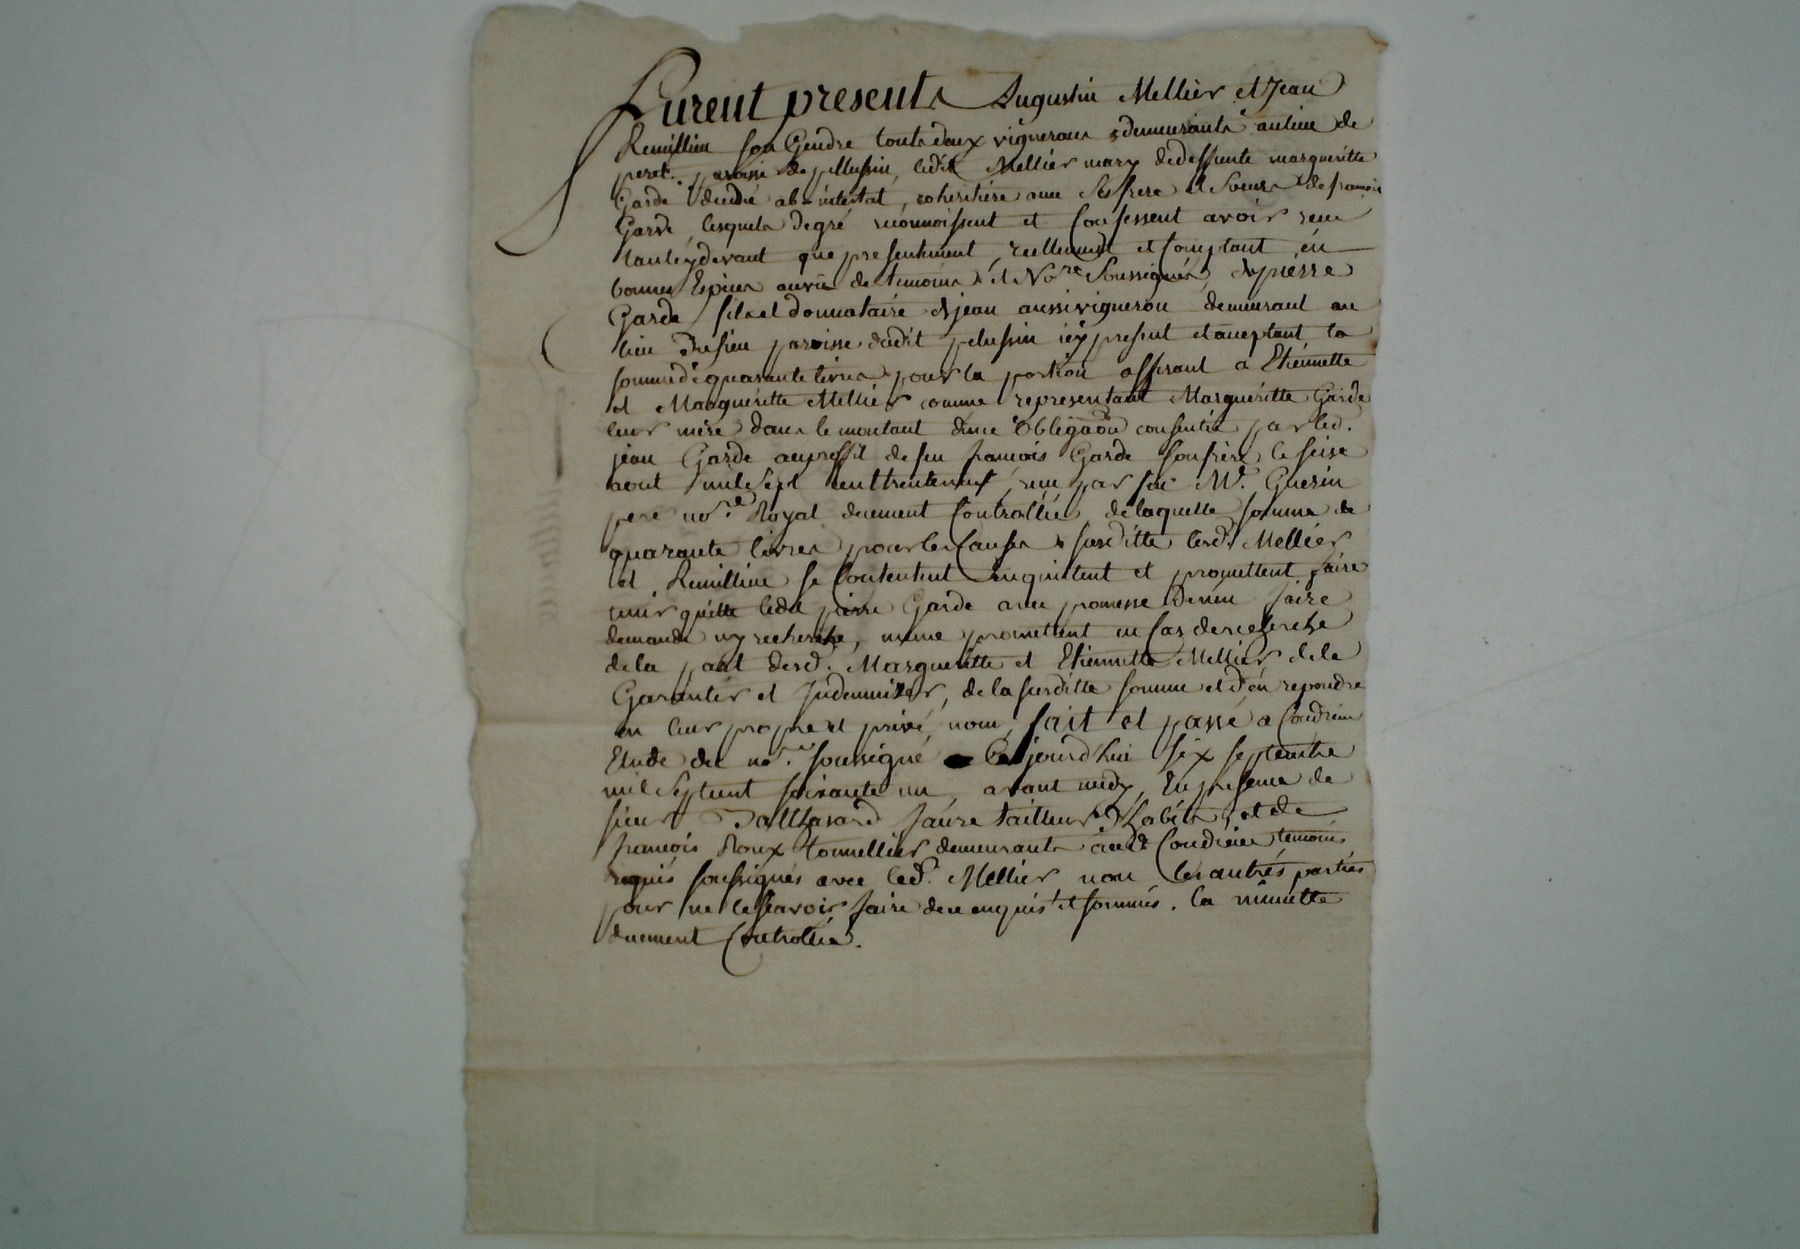 Furent presents Augustin Mellier et Jean
Remillieu son Gendre touts deux vignerons demeurants au lieu de
peret paroisse de pellussin, ledit Mellier mary de deffunte margueritte
Garde decedée ab-intestat, coheritiere avec ses frere et soeurs de francois
Garde, lesquels de gré reconnoissent et confessent avoir reçu
tant cy devant que presentement, reellement et comptant en
bonnes Espices au vû de temoins et No.re soussignés, de pierre
Garde fils et donnataire de jean aussi vigneron demeurant au
lieu paroisse dudit pelussin icy present et acceptant la
somme de quarante livres pour la portion afferant a Etiennette
et Margueritte Mellier comme representant Margueritte Garde
leur mere dans le montant d'une obliga͠on consentie par led.
jean Garde au proffit de feu francois Garde son frere le seise
aout mil sept cent trente neuf, reçu par feu M.e Guerin
pere no.re Royal duement controllée, de laquelle somme de
quarante livres pour les causes susditte lesd. Mellier
et Remillieu se contentent en quittent et promettent faire
tenir quitte ledit pierre Garde avec promesse de n'en faire
demande ny recherche, meme promettent en cas de recherche
de la part desd. Margueritte et Etiennette Mellier de le
Garantir et Indemnizer, de la susditte somme et d'en repondre
en leur propre et privé nom, fait et passé a Condrieu
Etude du no.re soussigné Cejourd'hui six septembre
mil sept cent soixante un, avant midy, En presence de
sieur Balthazard faure tailleur d'habits, et de
francois Roux tonnellier demeurants aud. Condrieu temoins
requis soussignés avec led. Mellier non les autres parties
pour ne le scavoir faire de ce enquis et sommés. la minutte
duement Controllée.